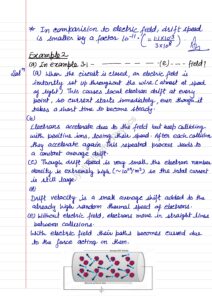 * In comparision to electric field, drift speed
is smaller by a factor 10⁻¹¹.
Example 2
(a) In example 3.1 - - - - (e) - - - field?
Solⁿ (a) When the circuit is closed, an electric field is
instantly set up throughout the wire (almost at speed
of light). This causes local electron drift at every
point, so current starts immediately, even though it
takes a short time to become steady.
(b)
Electrons accelerate due to the field but keep colliding
with positive ions, losing their speed. After each collision
they accelerate again. This repeated process leads to
a constant average drift.
(c) Though drift speed is very small, the electron number
density is extremely high (~10²⁹/m³) so the total current
is still large.
(d)
Drift velocity is a small average shift added to the
already high random thermal speed of electrons.
(e) Without electric field, electrons move in straight lines
between collisions.
With electric field their paths becomes curved due
to the force acting on them.